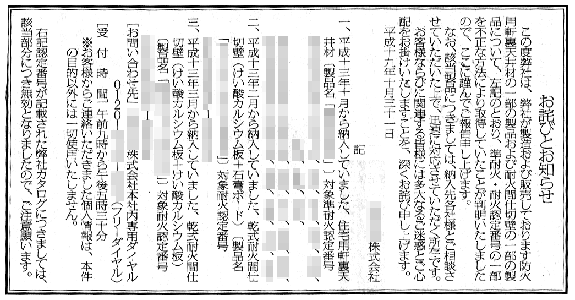 お詫びとお知らせ
この度弊社は、弊社が製造および販売しております防火
用軒裏天井材の一部の製品および耐火間仕切壁の一部の製
品について、左記のとおり、準耐火・耐火認定番号の一部
を不正な方法により取得していたことが判明いたしました
ので、ここに謹んでご報告申し上げます。
なお、該当製品につきましては、納入先各社様とご相談さ
せていただいた上で、迅速に対応させていただく所存です。
お客様ならびに関連する皆様には多大なるご迷惑とご心
配をお掛けいたしますことを、深くお詫び申し上げます。
平成十九年十月三十一日
株式会社
記
一、平成十三年十月から納入していました、住宅用軒裏天
井材〔製品名「 」〕対象準耐火認定番号
二、平成十三年二月から納入していました、乾式耐火間仕
切壁（けい酸カルシウム板＋石膏ボード）〔製品名
「 」〕対象耐火認定番号
三、平成十三年三月から納入していました、乾式耐火間仕
切壁（けい酸カルシウム板＋けい酸カルシウム板）
〔製品名「 」〕対象耐火認定番号
【お問い合わせ先】 株式会社本社内専用ダイヤル
0120- （フリーダイヤル）
【受付時間】午前九時から午後五時三十分
※お客様からご連絡いただきました個人情報は、本件
の目的以外には一切使用いたしません。
右記認定番号が記載された弊社カタログにつきましては、
該当部分につき無効となりましたので、ご注意願います。